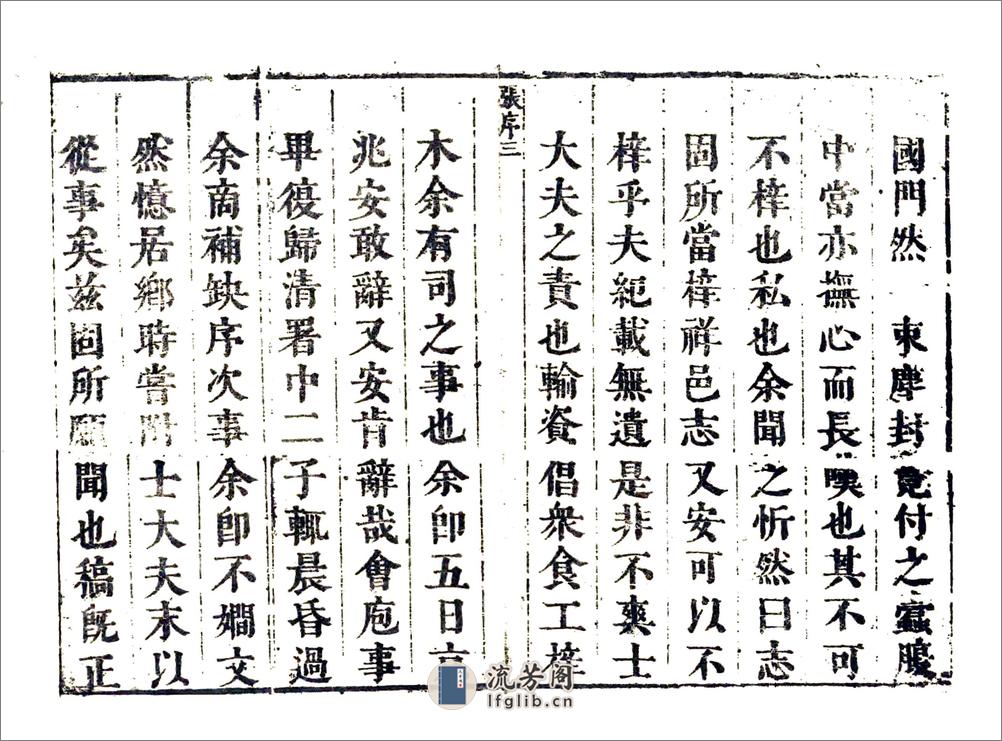 國門然 東塵封竟付之蠧腹
中當亦撫心而長嘆也其不可
不梓也私也余聞之忻然曰志
固所當梓祥邑志又安可以不
梓乎夫紀載無遺是非不爽士
大夫之責也輸資倡衆食工梓
張序三
木余有司之事也余卽五日京
兆安敢辭又安肯辭哉會庖事
畢復歸清署中二子輒晨昏過
余商補缺序次事余卽不嫺文
然憶居鄉時嘗附士大夫末以
從事矣兹固所願聞也稿旣正
流芳阁
lfglib.cn